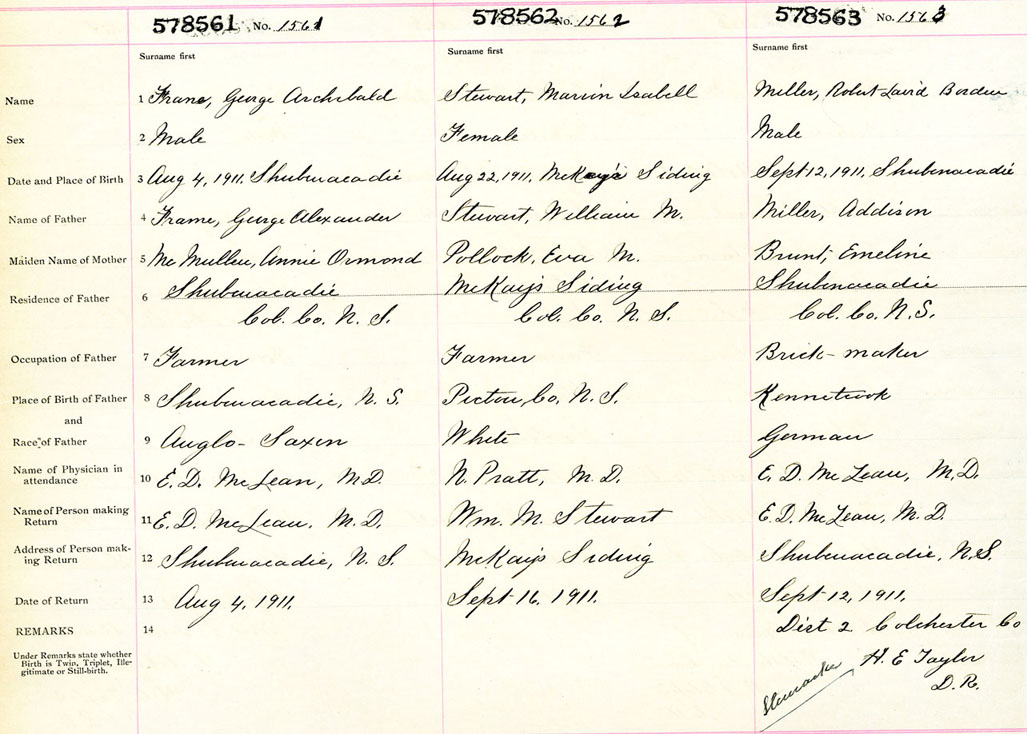 578561 No. 1561 578562 No. 1562 578563 No. 1563
Surname first Surname first Surname first
Name 1 Frame, George Archibald Stewart, Marion Isabell Miller, Robert Laird Borden
Sex 2 Male Female Male
Date and Place of Birth 3 Aug 4, 1911. Shubenacadie Aug 22, 1911, McKay's Siding Sept 12, 1911, Shubenacadie
Name of Father 4 Frame, George Alexander Stewart, William M. Miller, Addison
Maiden Name of Mother 5 Mc Mullen, Annie Ormond Pollock, Eva M. Brunt, Emeline
Residence of Father 6 Shubenacadie McKay's Siding Shubenacadie
Col. Co. N. S. Col. Co. N. S. Col. Co. N.S.
Occupation of Father 7 Farmer Farmer Brick-maker
Place of Birth of Father 8 Shubenacadie, N. S. Pictou, Co. N. S. Kennetcook
and
Race of Father 9 Anglo-Saxon White German
Name of Physician in
attendance 10 E. D. McLean, M.D. N. Pratt, M. D. E. D. McLean, M.D.
Name of Person making
Return 11 E. D. McLean, M. D. Wm. M. Stewart E. D. McLean, M. D.
Address of Person mak-
ing Return 12 Shubenacadie, N. S. McKay's Siding Shubenacadie, N.S.
Date of Return 13 Aug 4, 1911. Sept 16, 1911. Sept 12, 1911.
REMARKS 14 Dist 2 Colchester Co
Under Remarks state whether
Birth is Twin, Triplet, Ille-
gitimate or Still-birth.
H. E Taylor
D. R.